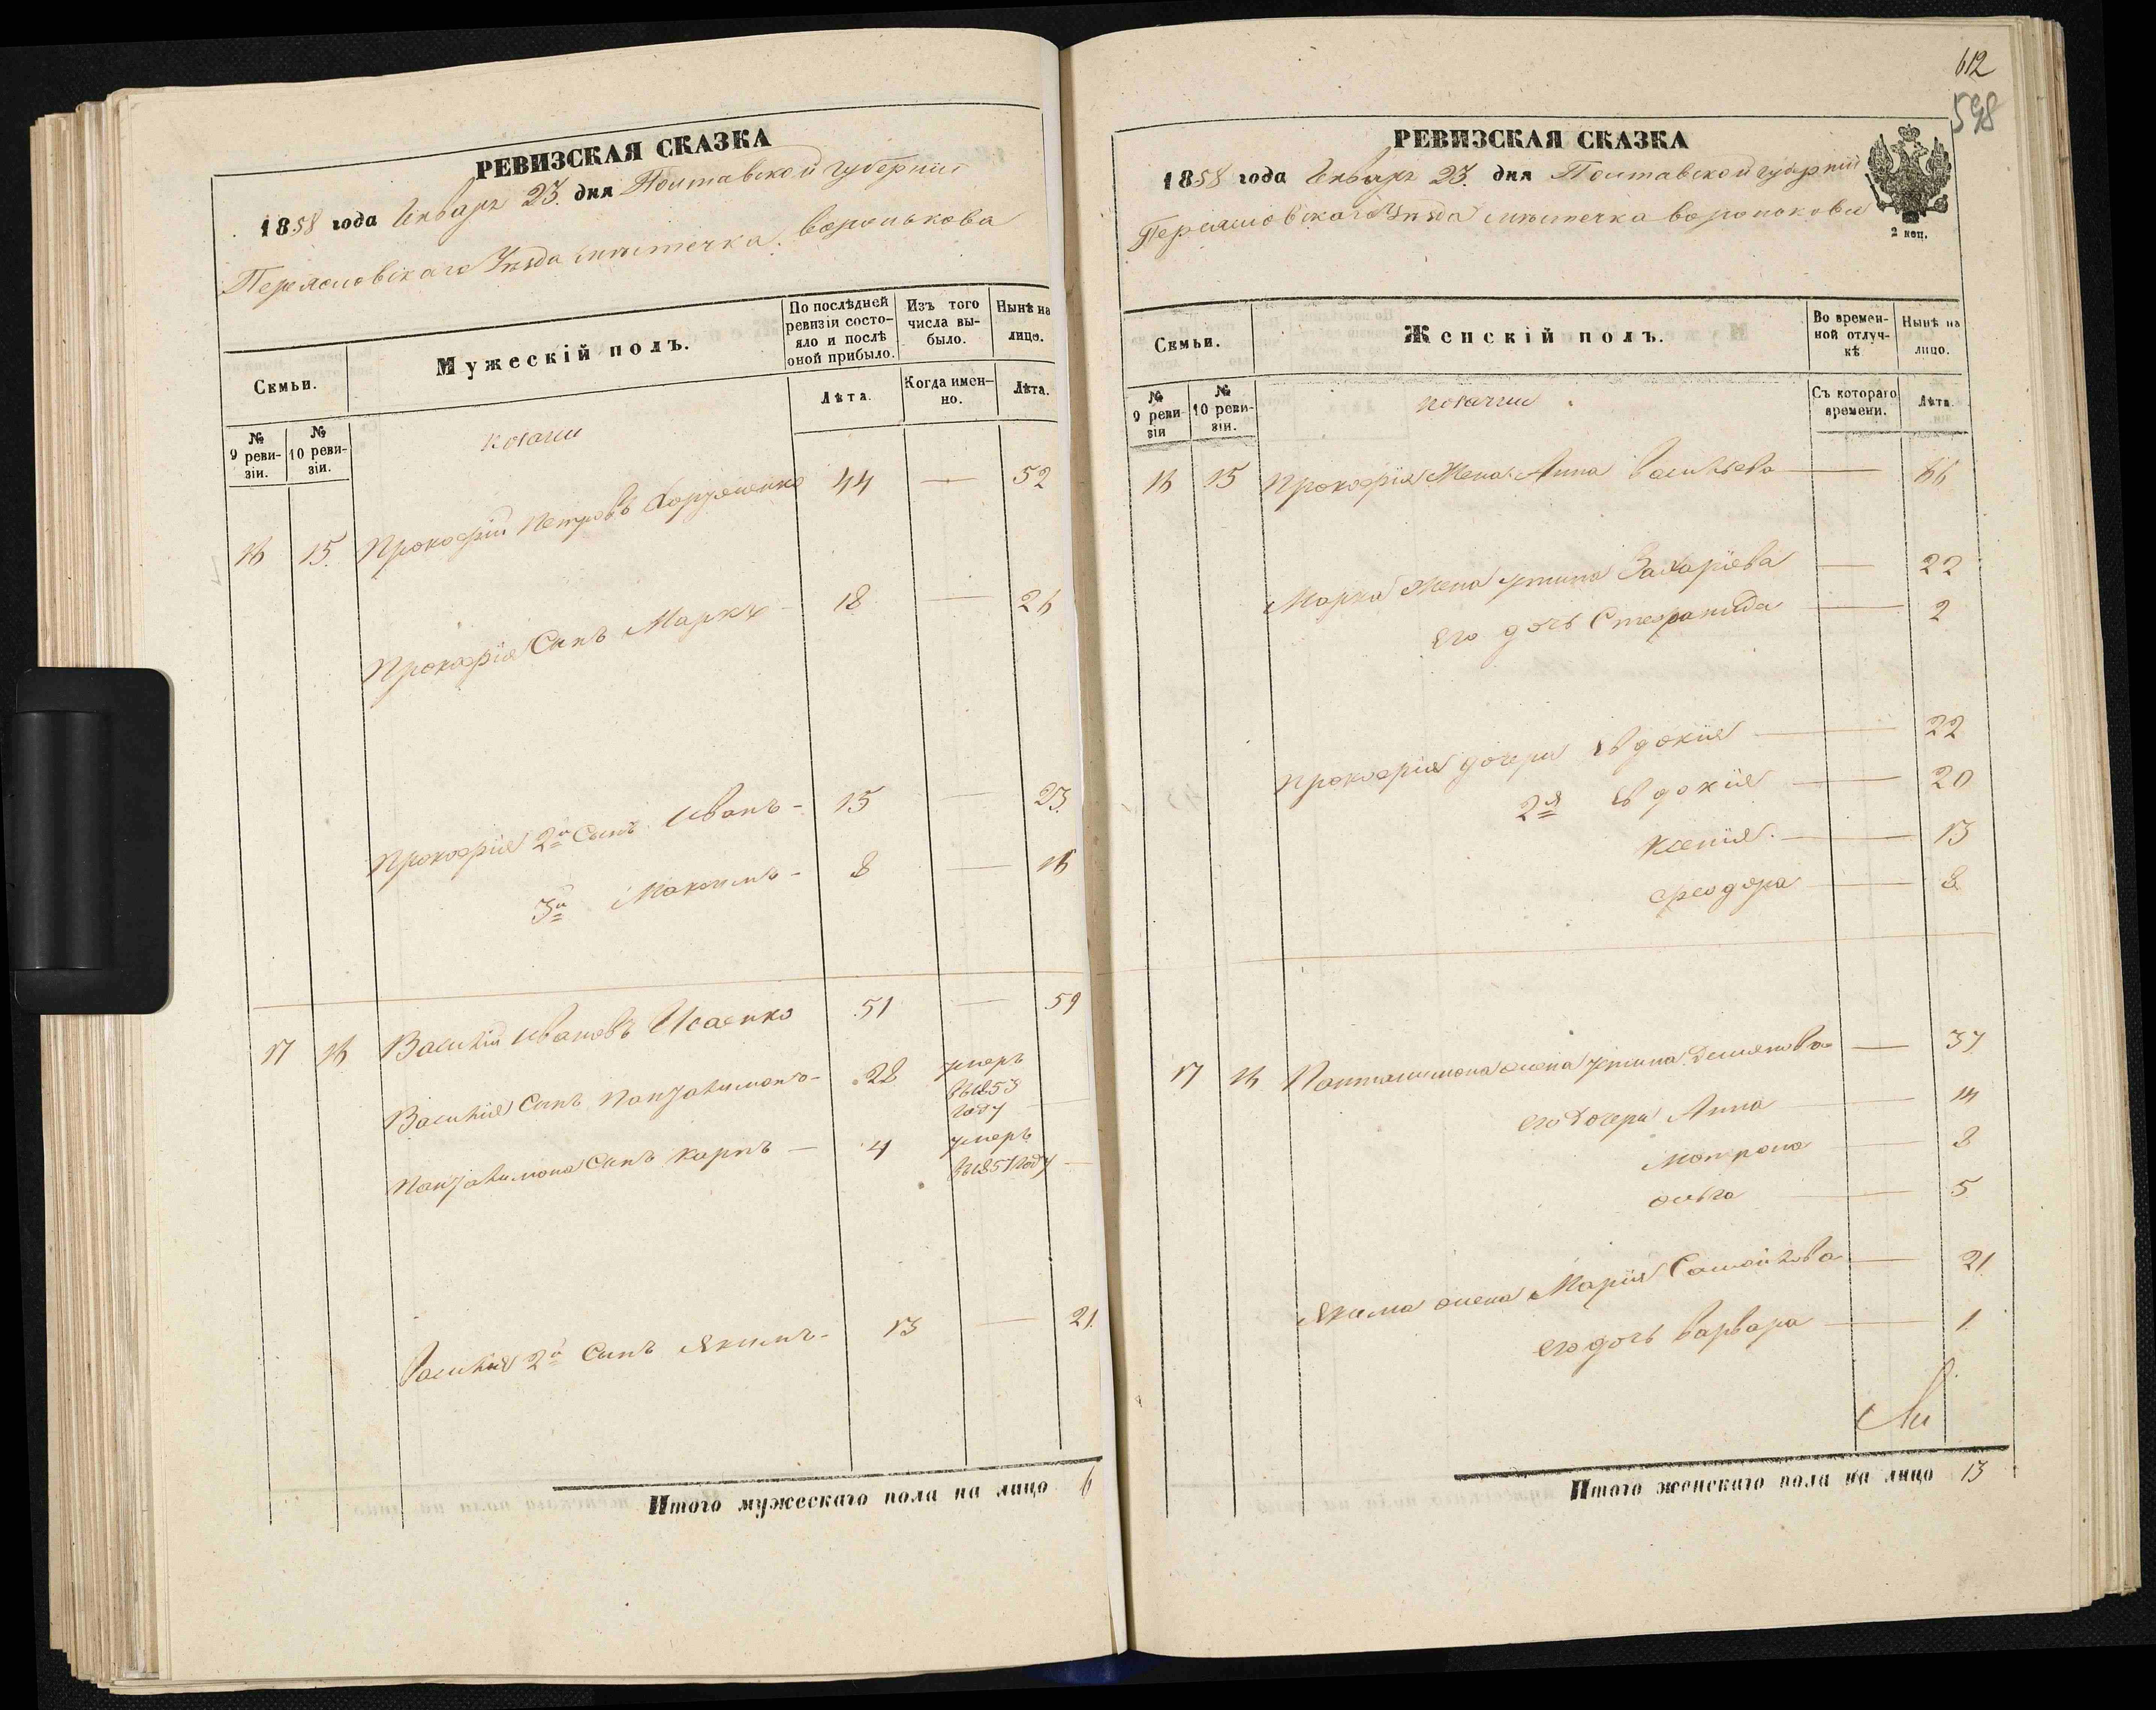 РЕВИЗСКАЯ СКАЗКА
1858 года Январь 23. дня Полтавской губерніи
Переясловскаго Уѣзда мѣстечка Воронькова
Семьи.
Мужескій полъ.
По послѣдней ревизіи состояло и послѣ оной прибыло.
Изъ того числа выбыло.
Нынѣ на лицо.
№ 9 ревизіи.
№ 10 ревизіи.
Лѣта.
Когда именно.
Лѣта.
козаки
16 15. Прокофій Петровъ 44 — 52
Прокофія Сынъ Марко 18 — 26
Прокофія 2й Сынъ Иванъ - 15 — 23
3й Максимъ - 8 — 16
17 16 Василій Ивановъ Исаенко 51 — 59
Василія Сынъ Панталимонъ - 28 умеръ
въ 1853
году —
Панталимона Сынъ Карпъ — 4 умеръ
въ 1851 году —
Василія 2й Сынъ Якимъ - 13 — 21.
Итого мужескаго пола на лицо 6
612
598
РЕВИЗСКАЯ СКАЗКА
1858 года Январь 23. дня Полтавской губерніи
Переясловскаго Уѣзда мѣстечка Воронькова
2 коп.
Семьи.
Женскій полъ.
Во временной отлучкѣ
Нынѣ на лицо.
№ 9 ревизіи
№ 10 ревизіи.
Съ котораго времени.
Лѣта.
козачки
16 15 Прокофія Жена Анна Васильева — 66
Марка Жена Устина Захаріева — 22
Его дочь Стефанида — 2
Прокофія дочери Евдокія — 22
2я Евдокія — 20
Ксенія — 13
Феодора — 8
17 16 Панталимона жена Устина Демянова — 37
его дочери Анна — 14
Матрона — 8
Ольга — 5
Якима жена Марія Самойлова — 21.
его дочь Варвара — 1.
Итого женскаго пола на лицо 13